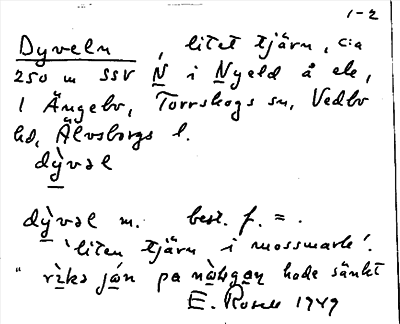 1-2
Dyveln, litet tjärn, c:a
250 m SSV N i Nyeld å ek,
1 Ängebo, Torrskogs sn, Vedbo
hd, Älvsborgs l.
dỳvəl
dỳvəl m. best. f. = .
'liten tjärn i mossmark'.
pa hade sänkt
E. Rosell 1949